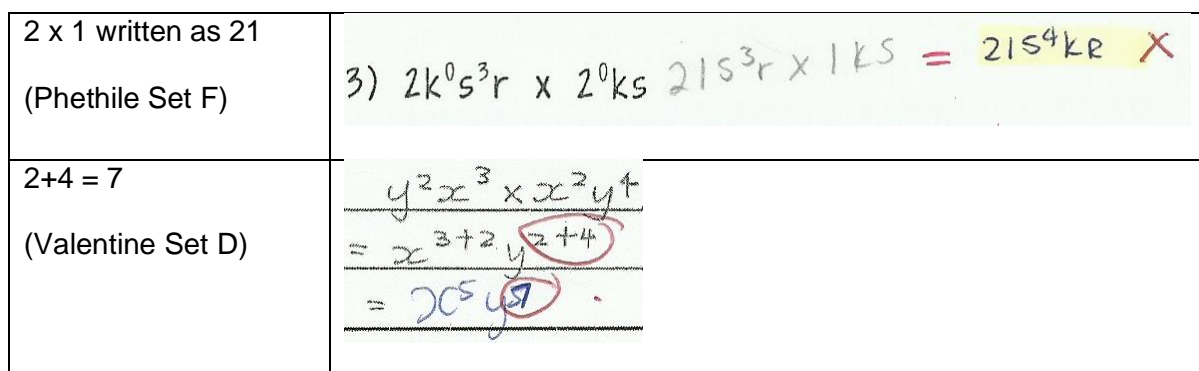 2 x 1 written as 21
(Phethile Set F)
3) 2k⁰s³r x 2⁰ks 21s³r x 1ks = 21s⁴kr X
2+4 = 7
(Valentine Set D)
y²x³ × x²y⁴
= x³⁺² y²⁺⁴
= x⁵y⁷